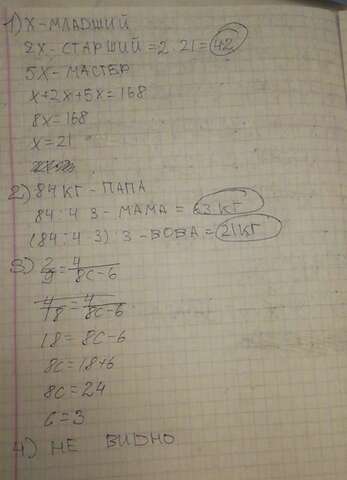 1) X-МЛАДШИЙ
2X-СТАРШИЙ=2·21=42
5X-МАСТЕР
X+2X+5X=168
8X=168
X=21
2) 84 КГ-ПАПА
84:4·3-МАМА=63 КГ
(84:4·3):3-ВОВА=21 КГ
3) 2/9=4/8С-6
4/18=4/8С-6
18=8С-6
8С=18+6
8С=24
С=3
4) НЕ ВИДНО